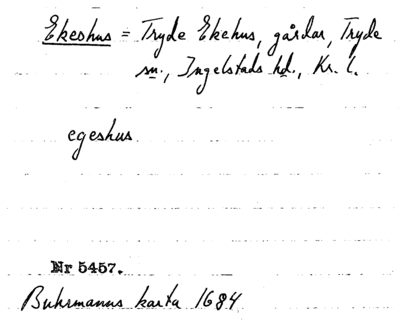 Ekeshus = Tryde Ekehus, gårdar, Tryde
sn., Ingelstads hd., Kr. l.
egeshus
Nr 5457.
Buhrmanns karta 1684